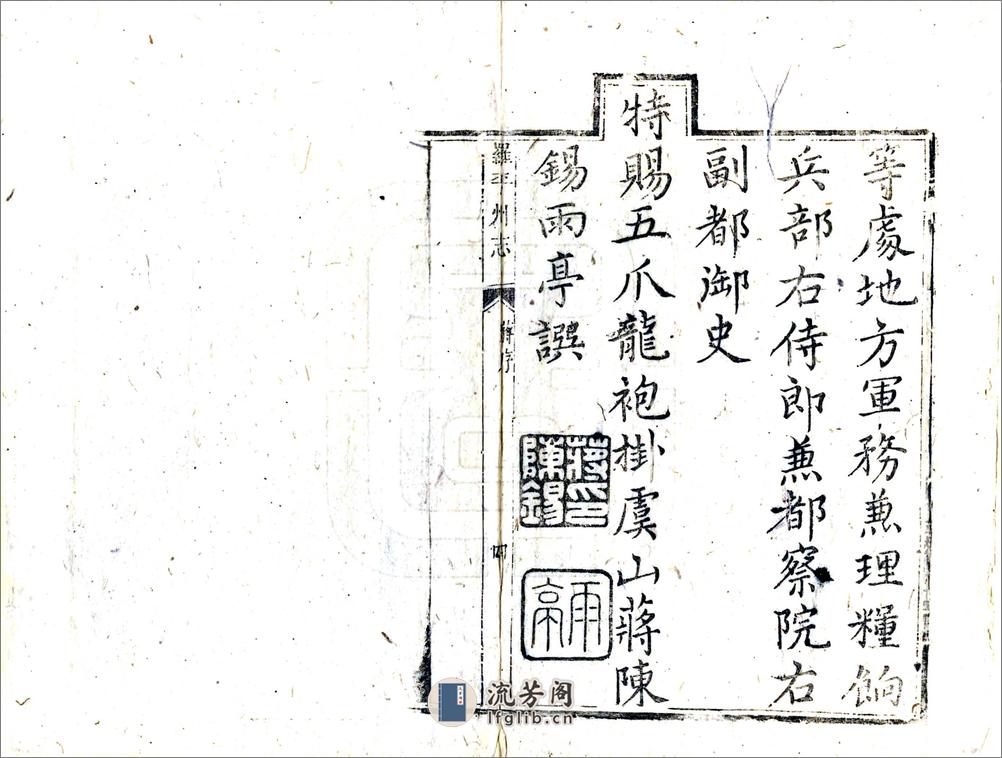 等處地方軍務兼理糧餉
兵部右侍郎兼都察院右
副都御史
特賜五爪龍袍掛虞山蔣陳
錫雨亭譔
蔣陳錫印
雨亭
羅平州志
蔣序
四
流芳阁
lfglib.cn